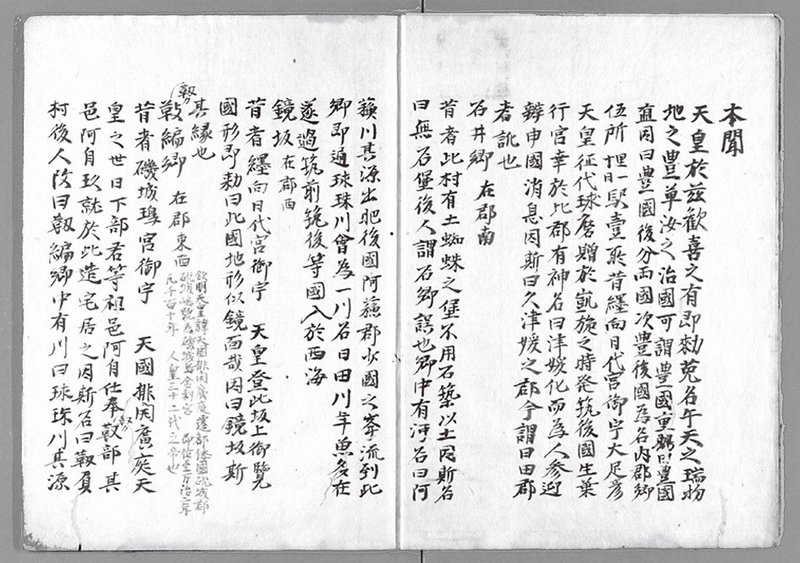 本聞
天皇於茲歓喜之有即勅菟名午天之瑞物
地之豊草汝之治國可謂豊國重賜曰豊國
直因曰豊國後分両國次豊後國為名内郡郷
伍所 駅壹所昔纒向日代宮御宇大足彦
天皇征伐球磨贈於凱旋之時発筑後國生葉
行宮幸於此郡有神名曰津媛化而為人参迎
辨申國消息因斯曰久津媛之郡今謂日田郡
者訛也
石井郷 在郡南
昔者此村有土蜘蛛之堡不用石築以土因斯名
曰無石堡後人謂石郷誤也郷中有河名曰阿
蘓川其源出肥後國阿蘓郡少國之峯流到此
郷即通球珠川會為一川名曰日田川年魚多在
遂過筑前筑後等國入於西海
鏡坂 在郡西
昔者纒向日代宮御宇 天皇登此坂上御覧
國形即勅曰此國地形似鏡面哉因曰鏡坂斯
其縁也
靫編郷 在郡東西
昔者磯城瑘宮御宇 天國排開廣庭天
皇之世日下部君等祖邑阿自仕奉靫部其
邑阿自玖就於此造宅居之因斯名曰靫負
村後人改曰靫編郷中有川曰球珠川其源